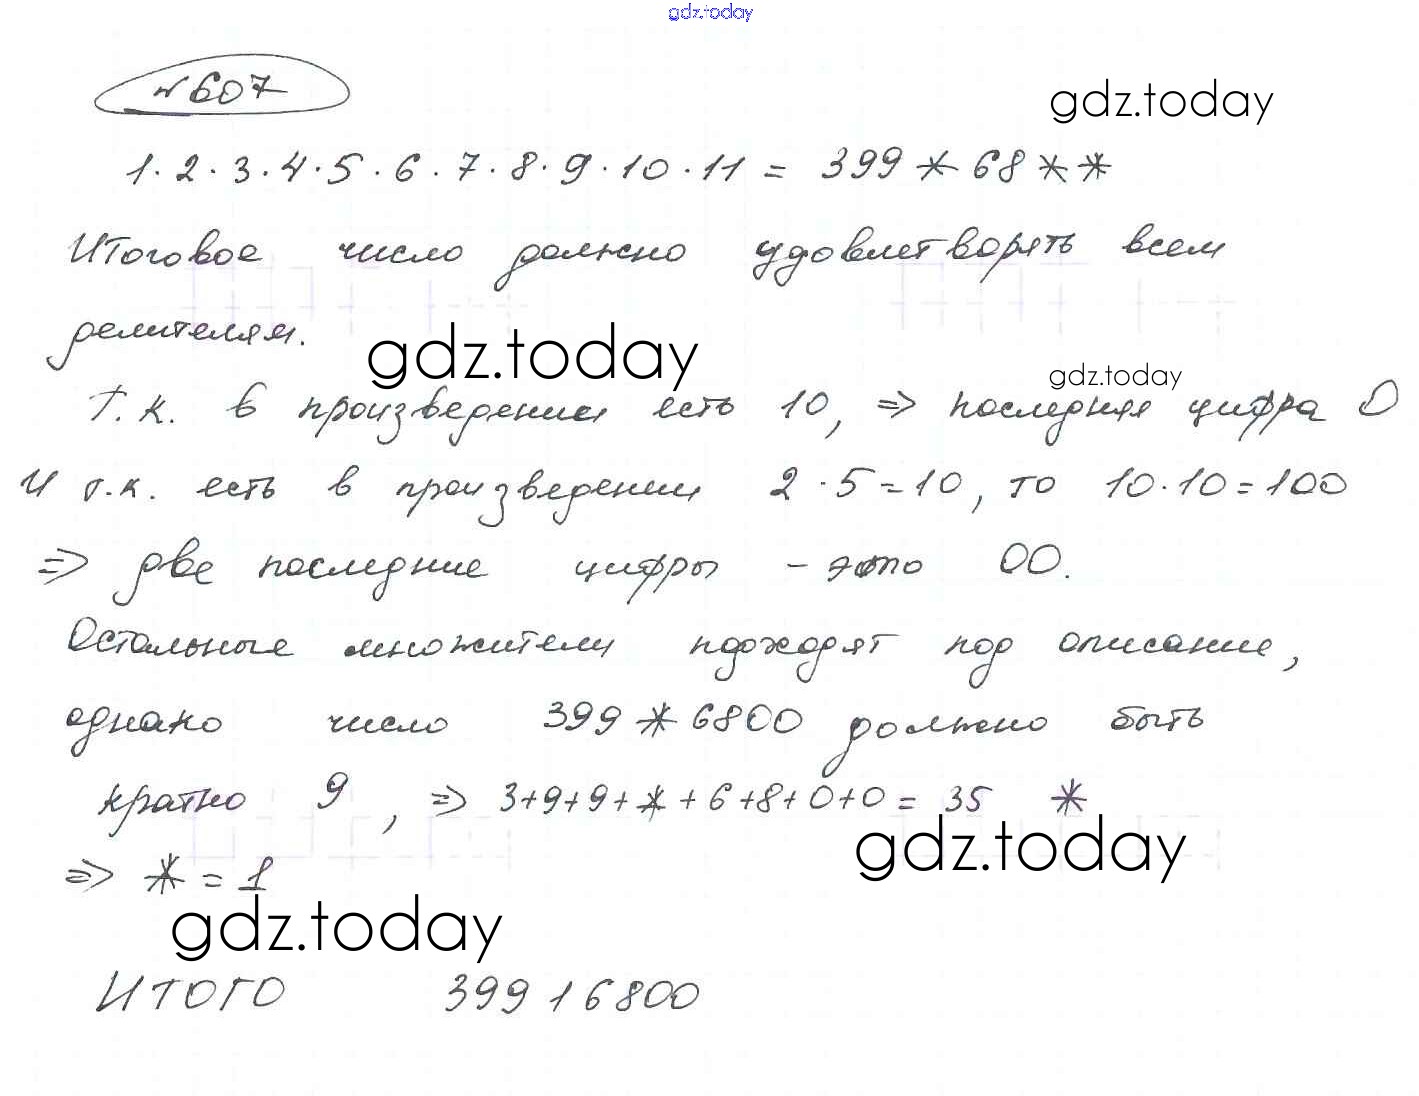 gdz.today
№607
gdz.today
1·2·3·4·5·6·7·8·9·10·11 = 399*68**
Итоговое число должно удовлетворять всем
делителям.
gdz.today
gdz.today
Т.к. в произведении есть 10, => последняя цифра 0
И т.к. есть в произведении 2·5=10, то 10·10=100
=> две последние цифры - это 00.
Остальные множители подходят под описание,
однако число 399*6800 должно быть
кратно 9, => 3+9+9+*+6+8+0+0= 35 *
gdz.today
=> *=1
gdz.today
ИТОГО 39916800